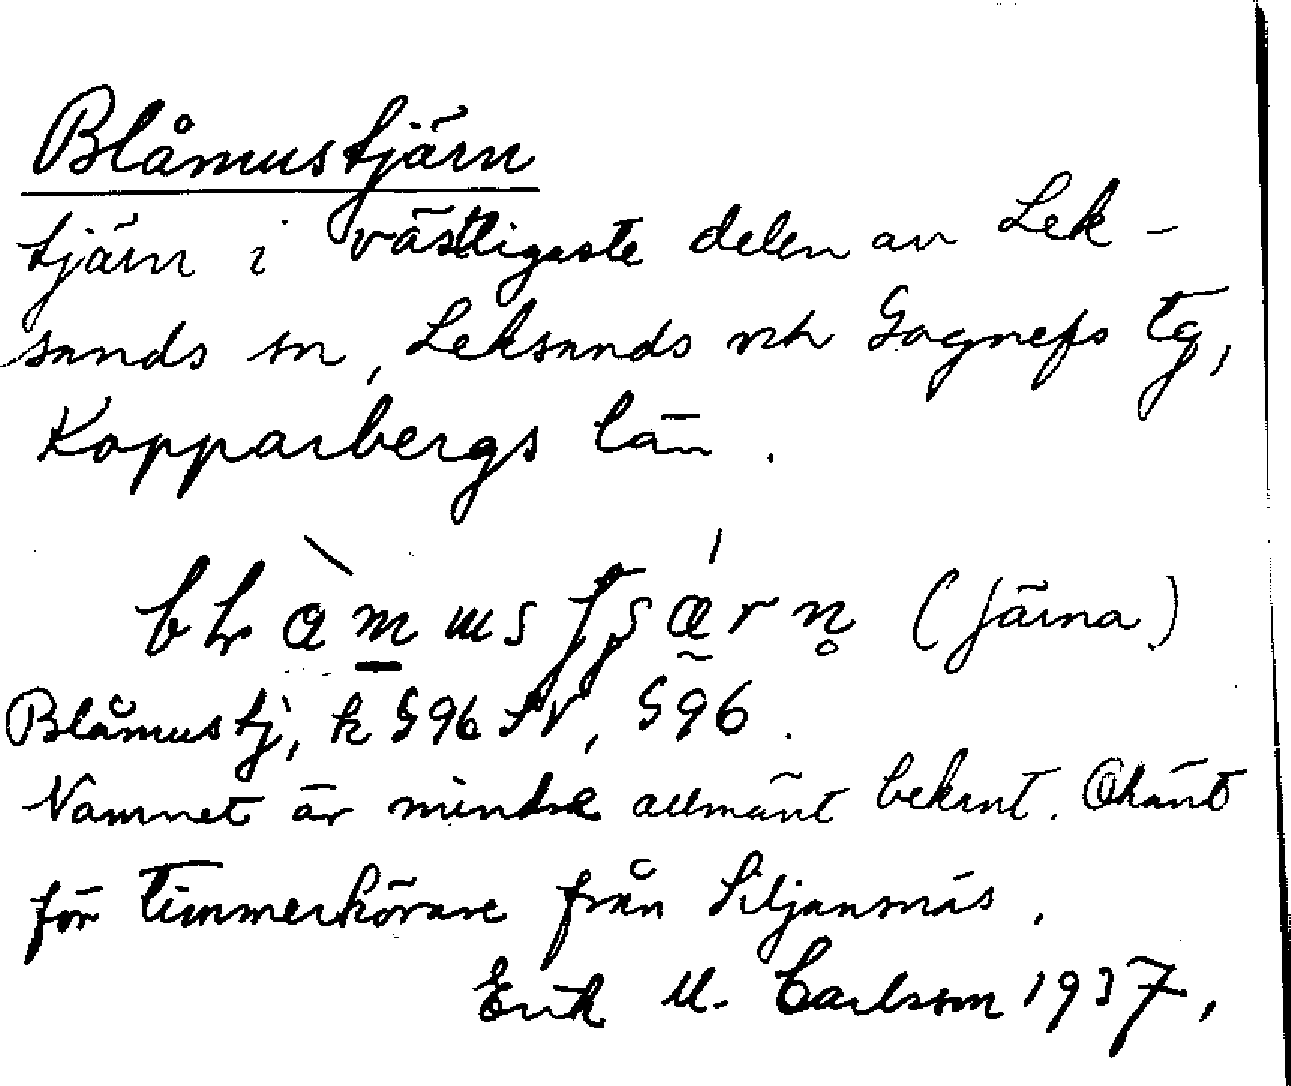 Blåmustjärn
tjärn i västligaste delen av Lek-
sands sn, Leksands och Gagnefs tg,
Kopparbergs län.
(Järna)
Blåmustj, k § 96 SV, § 96.
Namnet är mindre allmänt bekant. Okänt
för timmerkörare från Siljansnäs.
Erik M. Carlsson 1937,